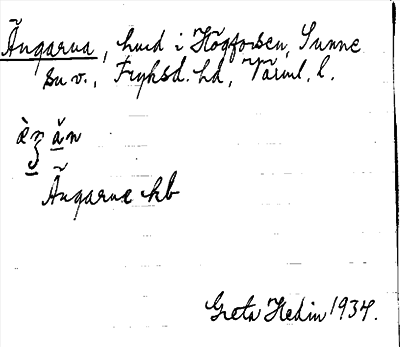 Ängarna, hmd i Högforsen, Sunne
sn v., Fryksd. hd, Värml. l.
Ängarne kb
Greta Hedin 1934.